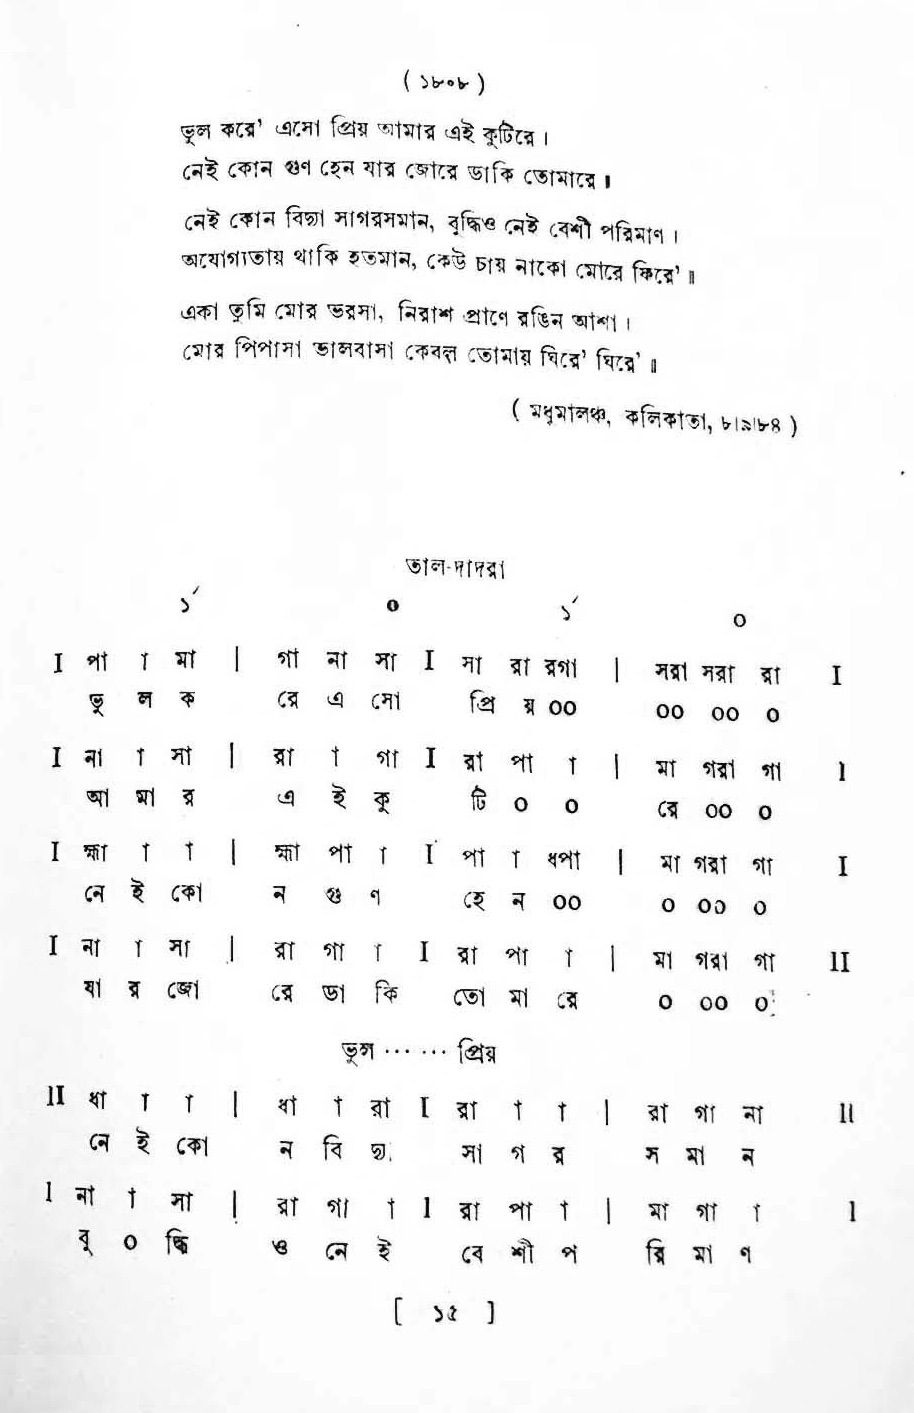 ( ১৮০৮ )
ভুল করে' এসো প্রিয় আমার এই কুটিরে ।
নেই কোন গুণ হেন যার জোরে ডাকি তোমারে ॥
নেই কোন বিদ্যা সাগরসমান, বুদ্ধিও নেই বেশী পরিমাণ ।
অযোগ্যতায় থাকি হতমান, কেউ চায় নাকো মোরে ফিরে' ॥
একা তুমি মোর ভরসা, নিরাশ প্রাণে রঙিন আশা ।
মোর পিপাসা ভালবাসা কেবল তোমায় ঘিরে' ঘিরে' ॥
( মধুমালঞ্চ, কলিকাতা, ৮।৯।৮৪ )
তাল-দাদরা
১´ ০ ১´ ০
I পা া মা | গা না সা I সা রা রগা | সরা সরা রা I
ভু ল ক রে এ সো প্রি য় ০০ ০০ ০০ ০
I না া সা | রা া গা I রা পা া | মা গরা গা I
আ মা র এ ই কু টি ০ ০ রে ০০ ০
I হ্মা া া | হ্মা পা া I পা া ধপা | মা গরা গা I
নে ই কো ন গু ণ হে ন ০০ ০ ০০ ০
I না া সা | রা গা া I রা পা া | মা গরা গা II
যা র জো রে ডা কি তো মা রে ০ ০০ ০
ভুল ... ... প্রিয়
II ধা া া | ধা া রা I রা া া | রা গা না II
নে ই কো ন বি দ্যা সা গ র স মা ন
I না া সা | রা গা া I রা পা া | মা গা া I
বু ০ দ্ধি ও নে ই বে শী প রি মা ণ
[ ১৫ ]